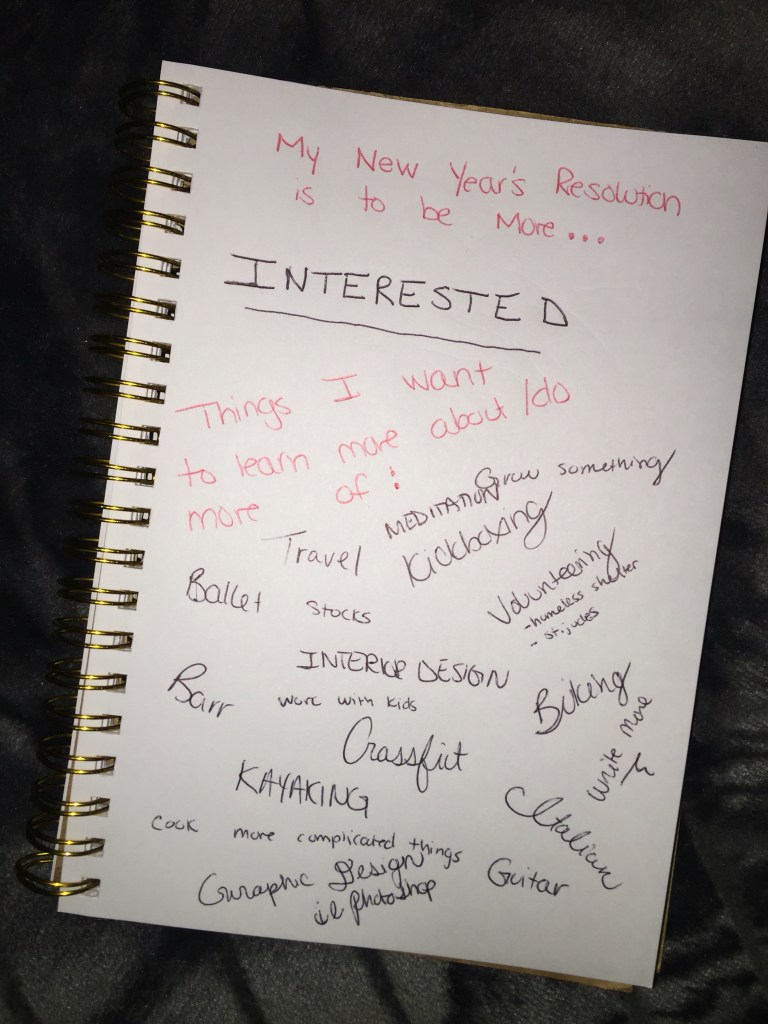 My New Year's Resolution
is to be More...
INTERESTED
Things I want
to learn more about/do
more of:
Grow something
MEDITATION
Travel
Kickboxing
Ballet
Stocks
Volunteering
-homeless shelter
- st.judes
INTERIOR DESIGN
Barr
work with kids
Biking
write more
Crossfit
KAYAKING
Italian
Cook more complicated things
Graphic Design
i.e photoshop
Guitar